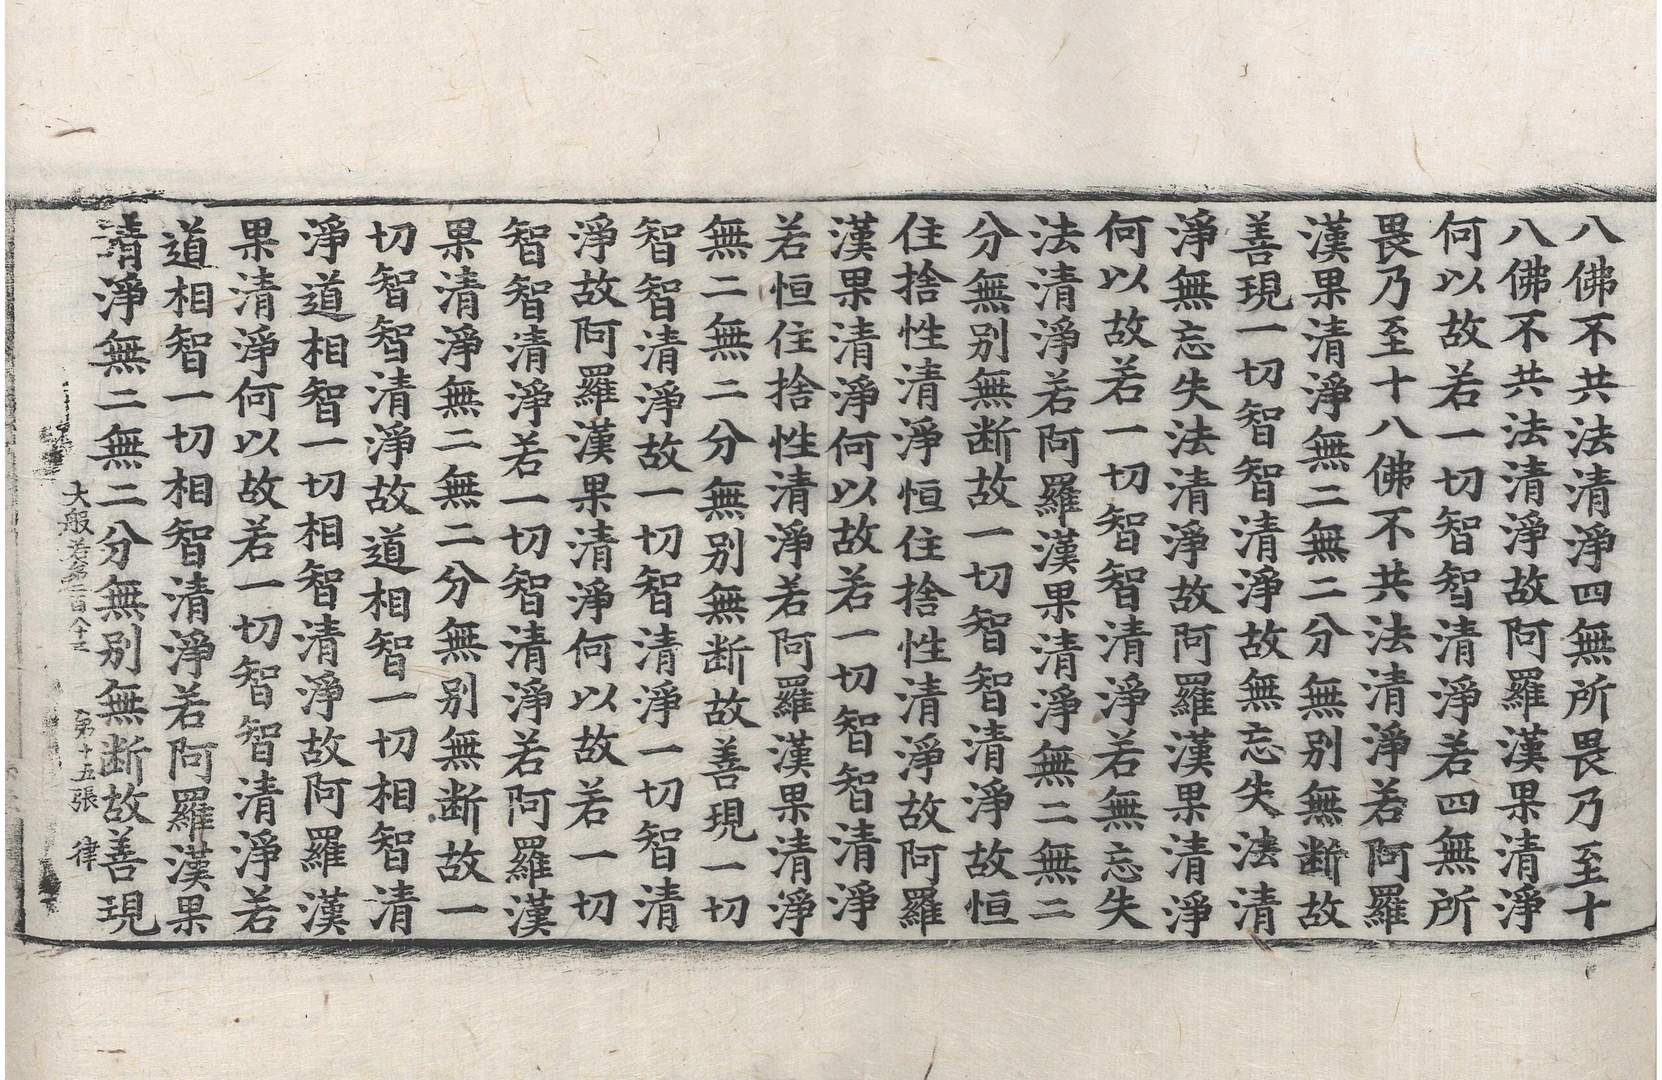 八佛不共法清淨四無所畏乃至十
八佛不共法清淨故阿羅漢果清淨
何以故若一切智智清淨若四無所
畏乃至十八佛不共法清淨若阿羅
漢果清淨無二無二分無别無断故
善現一切智智清淨故無忘失法清
淨無忘失法清淨故阿羅漢果清淨
何以故若一切智智清淨若無忘失
法清淨若阿羅漢果清淨無二無二
分無别無断故一切智智清淨故恒
住捨性清淨恒住捨性清淨故阿羅
漢果清淨何以故若一切智智清淨
若恒住捨性清淨若阿羅漢果清淨
無二無二分無别無断故善現一切
智智清淨故一切智清淨一切智清
淨故阿羅漢果清淨何以故若一切
智智清淨若一切智清淨若阿羅漢
果清淨無二無二分無别無断故一
切智智清淨故道相智一切相智清
淨道相智一切相智清淨故阿羅漢
果清淨何以故若一切智智清淨若
道相智一切相智清淨若阿羅漢果
清淨無二無二分無别無断故善現
大般若第二百八十三 第十五張 律